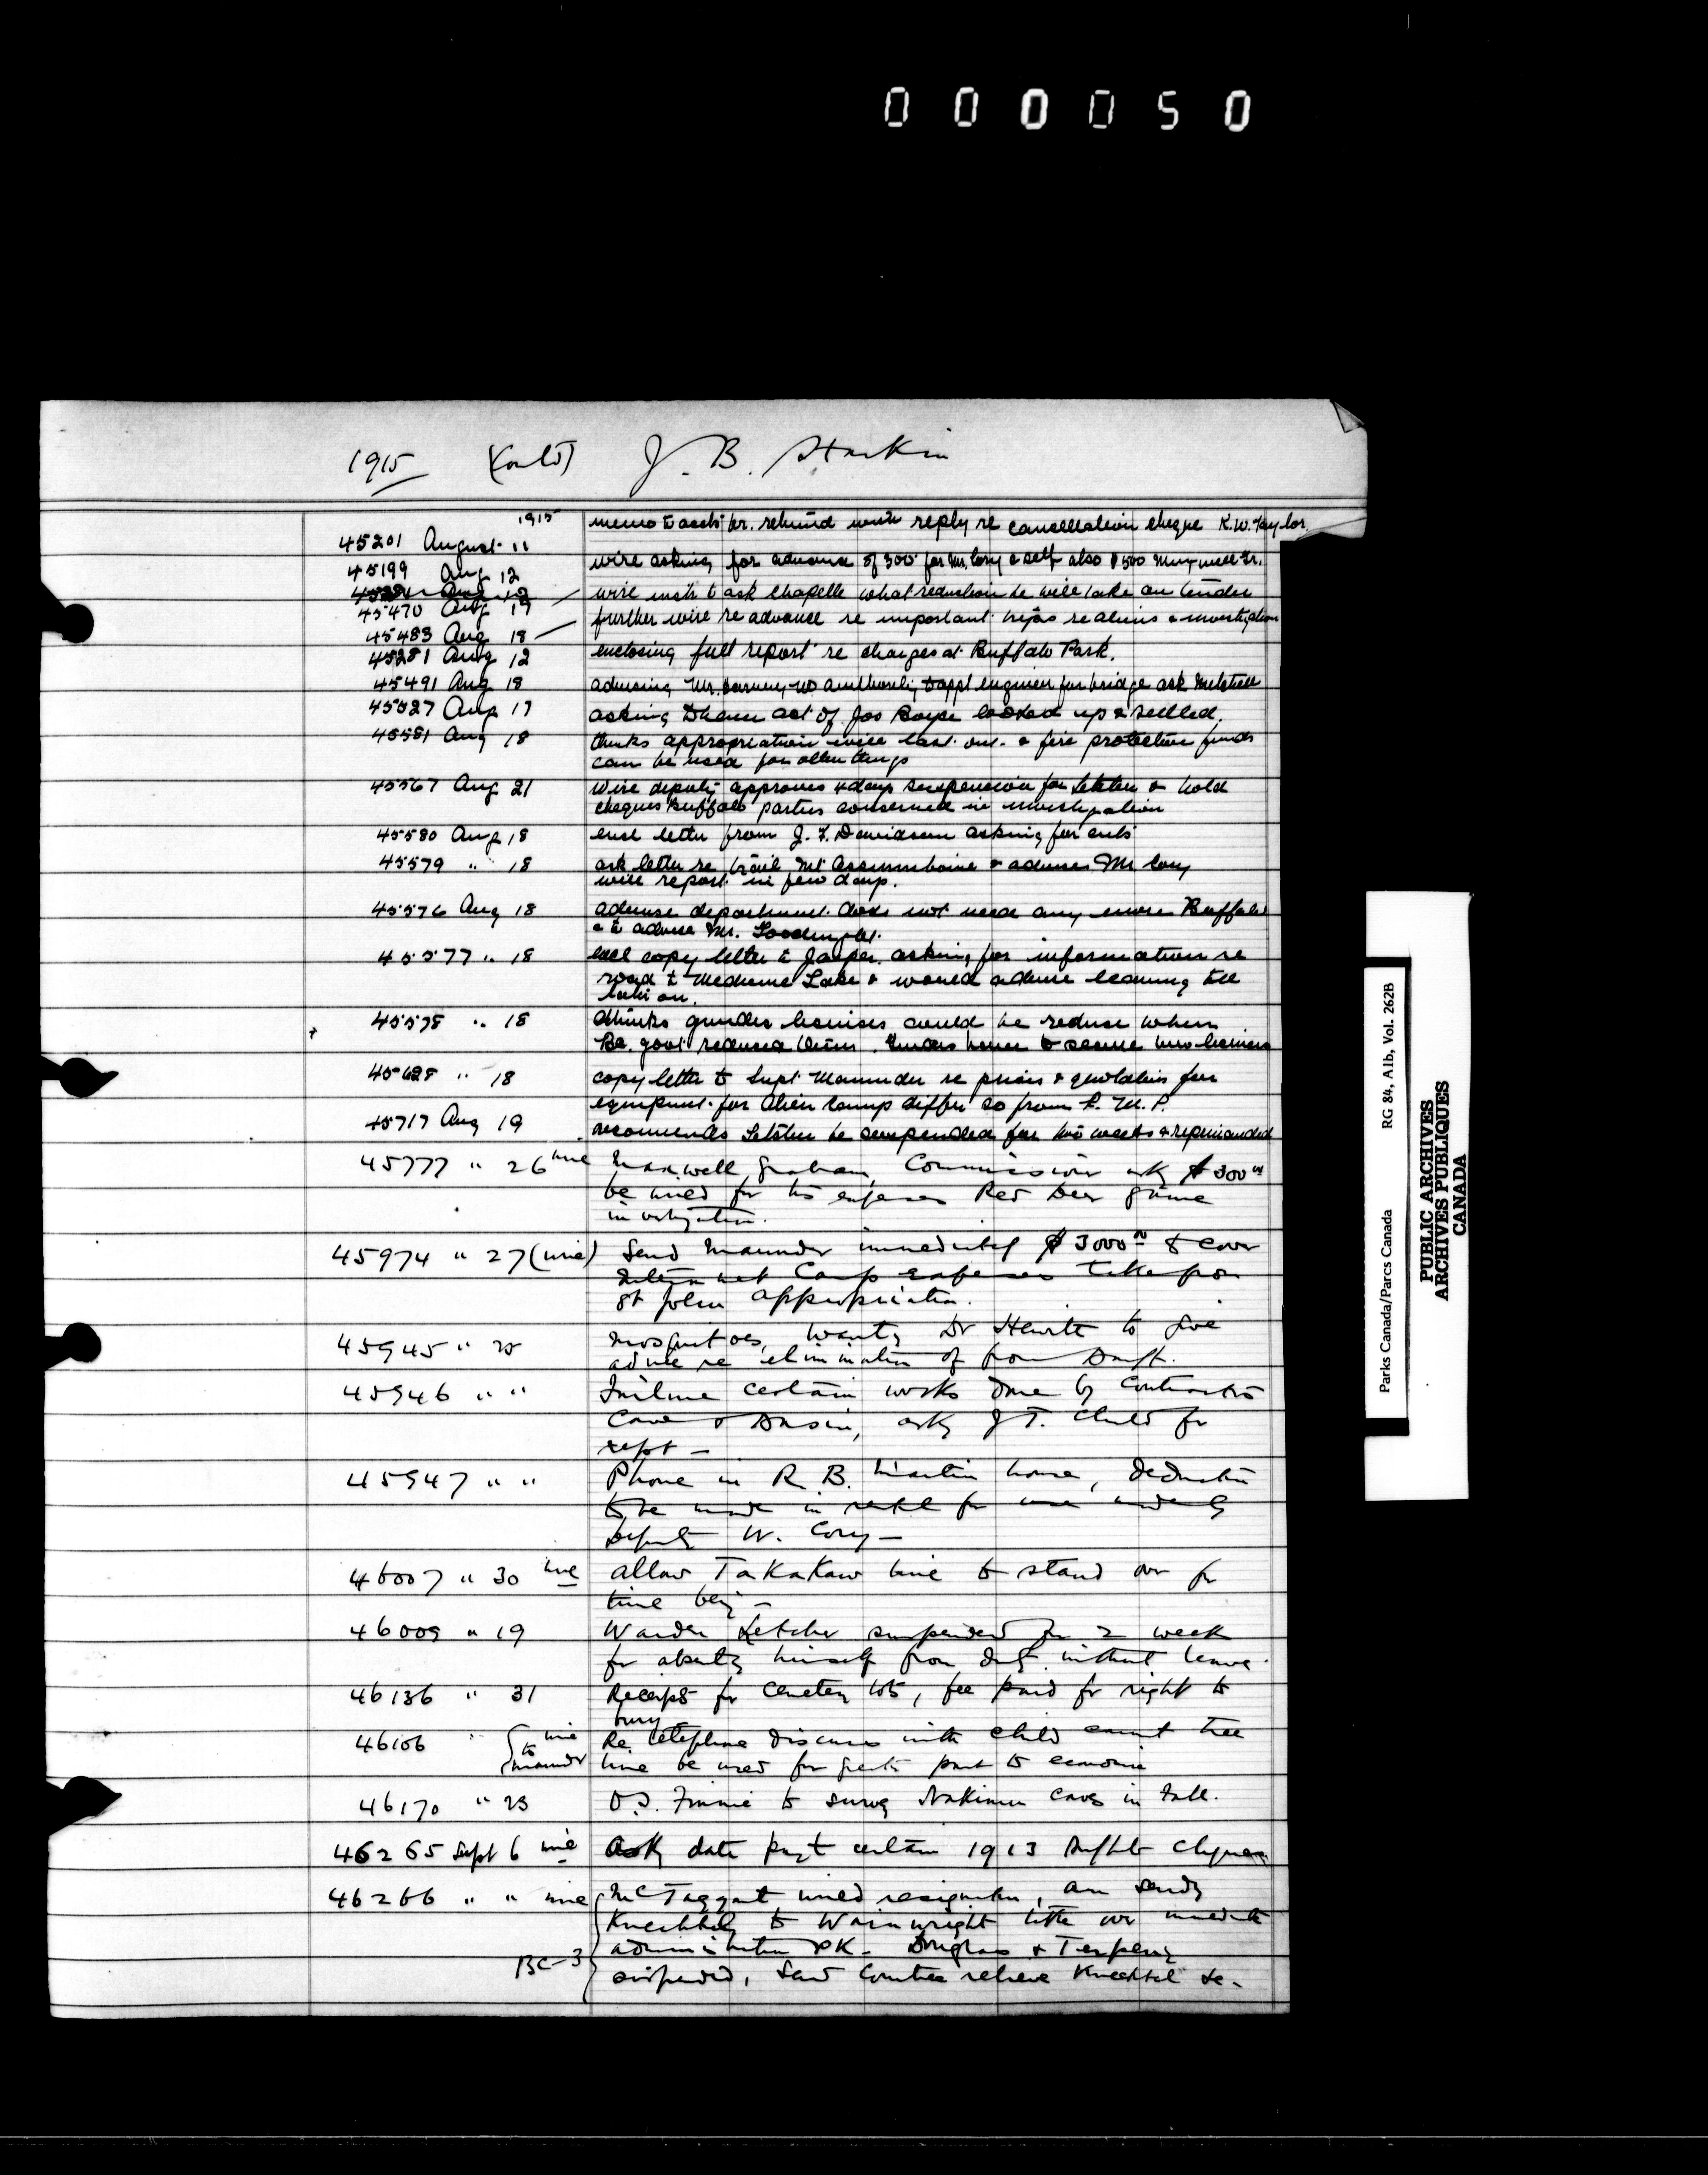 000050
1915 (Contd) J. B. Harkin
1915
45201 August 11 memo to acct br. refund with reply re cancellation cheque K.W. Taylor.
45199 Aug 12 wire asking for advance of 300 for Mr. Cory & self also $500
45470 Aug 19 wire to ask Chapelle what reduction he will take on tender
45483 Aug 18 further wire re advance re important trips re aliens & investigation
45281 Aug 12 enclosing full report re charges at Buffalo Park.
45491 Aug 18 advising Mr. no authority to appt engineer for bridge ask Mitchell
45527 Aug 17 asking acct of Jos Boyce looked up & settled.
45581 Aug 18 thinks appropriation will last out & fire protection funds
can be used for other things
45567 Aug 21 Wire deputy approves suspension for Letcher & hold
cheques Buffalo parties concerned in investigation
45580 Aug 18 encl letter from J. F. Davidson asking for cuts
45579 " 18 ack letter re trail Mt Assiniboine & advises Mr Cory
will report in few days.
45576 Aug 18 advise department does not need any more Buffalo
& to advise Mr.
45577 " 18 encl copy letter to Jasper asking for information re
road to Medicine Lake & would advise leaving till
later on.
45578 " 18 thinks guides licenses could be reduce when
Bc. govt reduced theirs. Guides have to secure two licenses
45628 " 18 copy letter to Supt Maunder re prices & quotations for
equipment for Alien Camp differ so from R. M. P.
45717 Aug 19 recommends Letcher be suspended for two weeks & reprimanded
45777 " 26 wire Maxwell Graham, Commissioner ask $300 00
be wired for his expenses Red Deer game
investigation.
45974 " 27 (wire) Send Maunder immediately $3000 00 to cover
Internment Camp expenses take from
St John appropriation.
45945 " 25 Mosquitoes, wants Dr Hewitt to give
advice re elimination of from Banff.
45946 " " Failure certain works done by Contractors
Cave & Basin, ask J T. Child for
rept —
45947 " " Phone in R. B. Martin house, deduction
to be made in rental for use
Deputy W. Cory —
46007 " 30 wire allow TaKaKaw line to stand over for
time being —
46009 " 19 Warden Letcher suspended for 2 week
for absenting himself from duty without leave.
46136 " 31 Receipts for Cemetery lots, fee paid for right to
bury
46106 " wire to Maunder Re telephone discuss with Child cannot tree
line be used for greater part to economise
46170 " 23 O.S. Finnie to survey Nakimu Caves in Fall.
46265 Sept 6 wire Ask date payt certain 1913 Buffalo Cheques
46266 " " wire McTaggart wired resignation, am sending
Knechtel to Wainwright take over immediate
administration PK - Douglas &
BC-3 suspended, send relieve Knechtel Se-
Parks Canada/Parcs Canada RG 84, A1b, Vol. 262B
PUBLIC ARCHIVES
ARCHIVES PUBLIQUES
CANADA